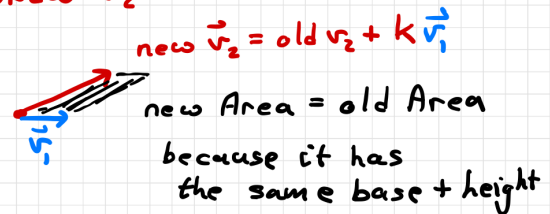 new v⃗₂ = old v₂ + k v⃗₁
v⃗₁
new Area = old Area
because it has
the same base + height